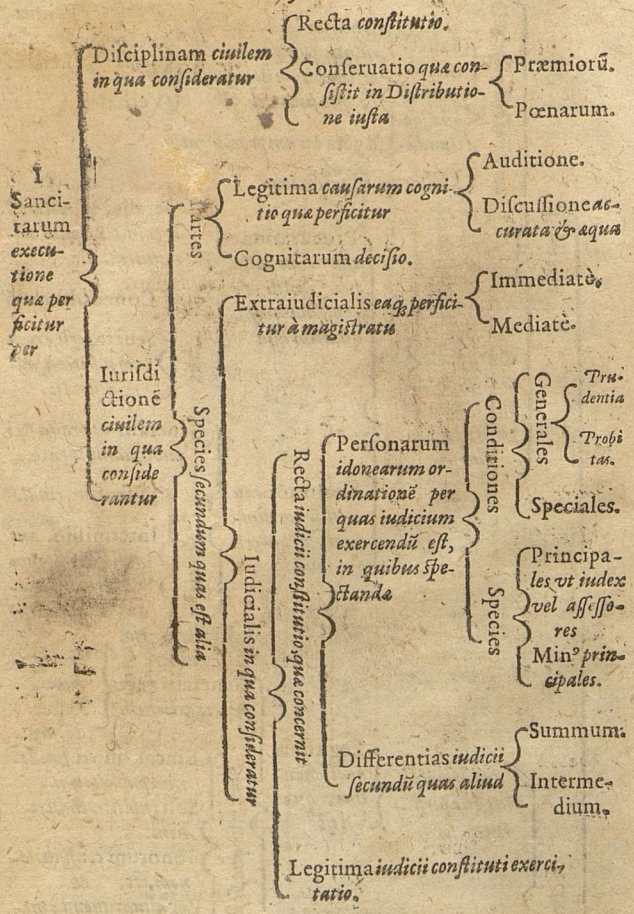 I
Sanci-
tarum
execu-
tione
quæ per
ficitur
per
Disciplinam ciuilem
in qua consideratur
Recta constitutio.
Conseruatio quæ con-
sistit in Distributio-
ne iusta
Præmiorũ.
Pœnarum.
Iurisdi
ctionẽ
ciuilem
in qua
conside
rantur
Partes
Legitima causarum cogni-
tio quæ perficitur
Auditione.
Discussione ac-
curata & æqua
Cognitarum decisio.
Species secundum quas est alia
Extraiudicialis eaq; perfici-
tur à magistratu
Immediatè.
Mediatè.
Iudicialis in qua consideratur
Recta iudicii constitutio, quæ concernit
Personarum
idonearum or-
dinationẽ per
quas iudicium
exercendũ est,
in quibus spe-
ctandæ
Conditiones
Generales
Pru-
dentia
Probi
tas.
Speciales.
Species
Principa-
les vt iudex
vel assesso-
res
Minꝰ prin-
cipales.
Differentias iudicii
secundũ quas aliud
Summum.
Interme-
dium.
Legitima iudicii constituti exerci-
tatio.